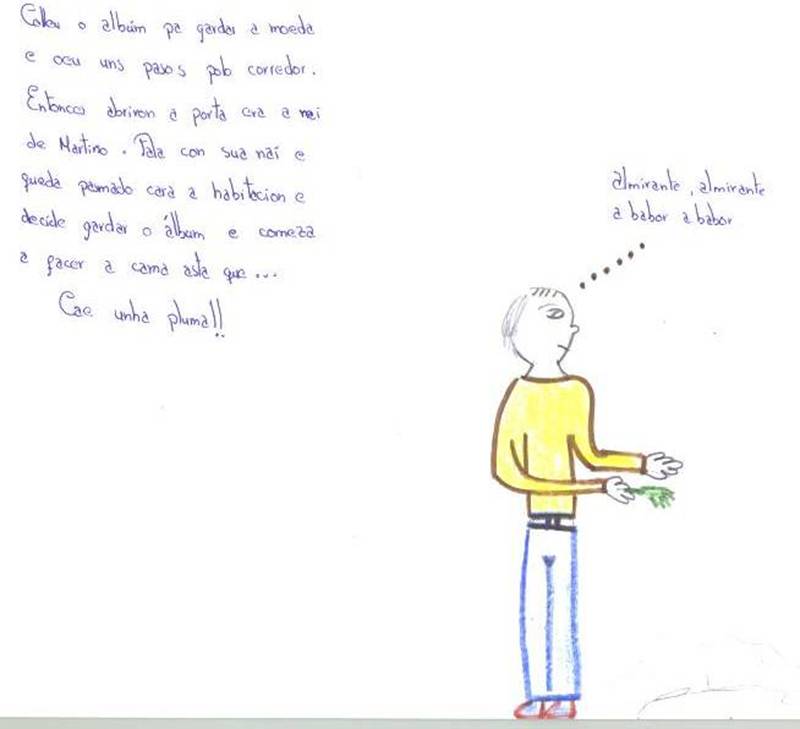 Colleu o albúm pa gardar a moeda
e oeu uns pasos polo corredor.
Entonces abriron a porta era a nai
de Martiño. Fala con sua nai e
queda pasmado cara a habitacion e
decide gardar o álbum e comeza
a facer a cama asta que ...
Cae unha pluma!!
almirante, almirante
a babor a babor